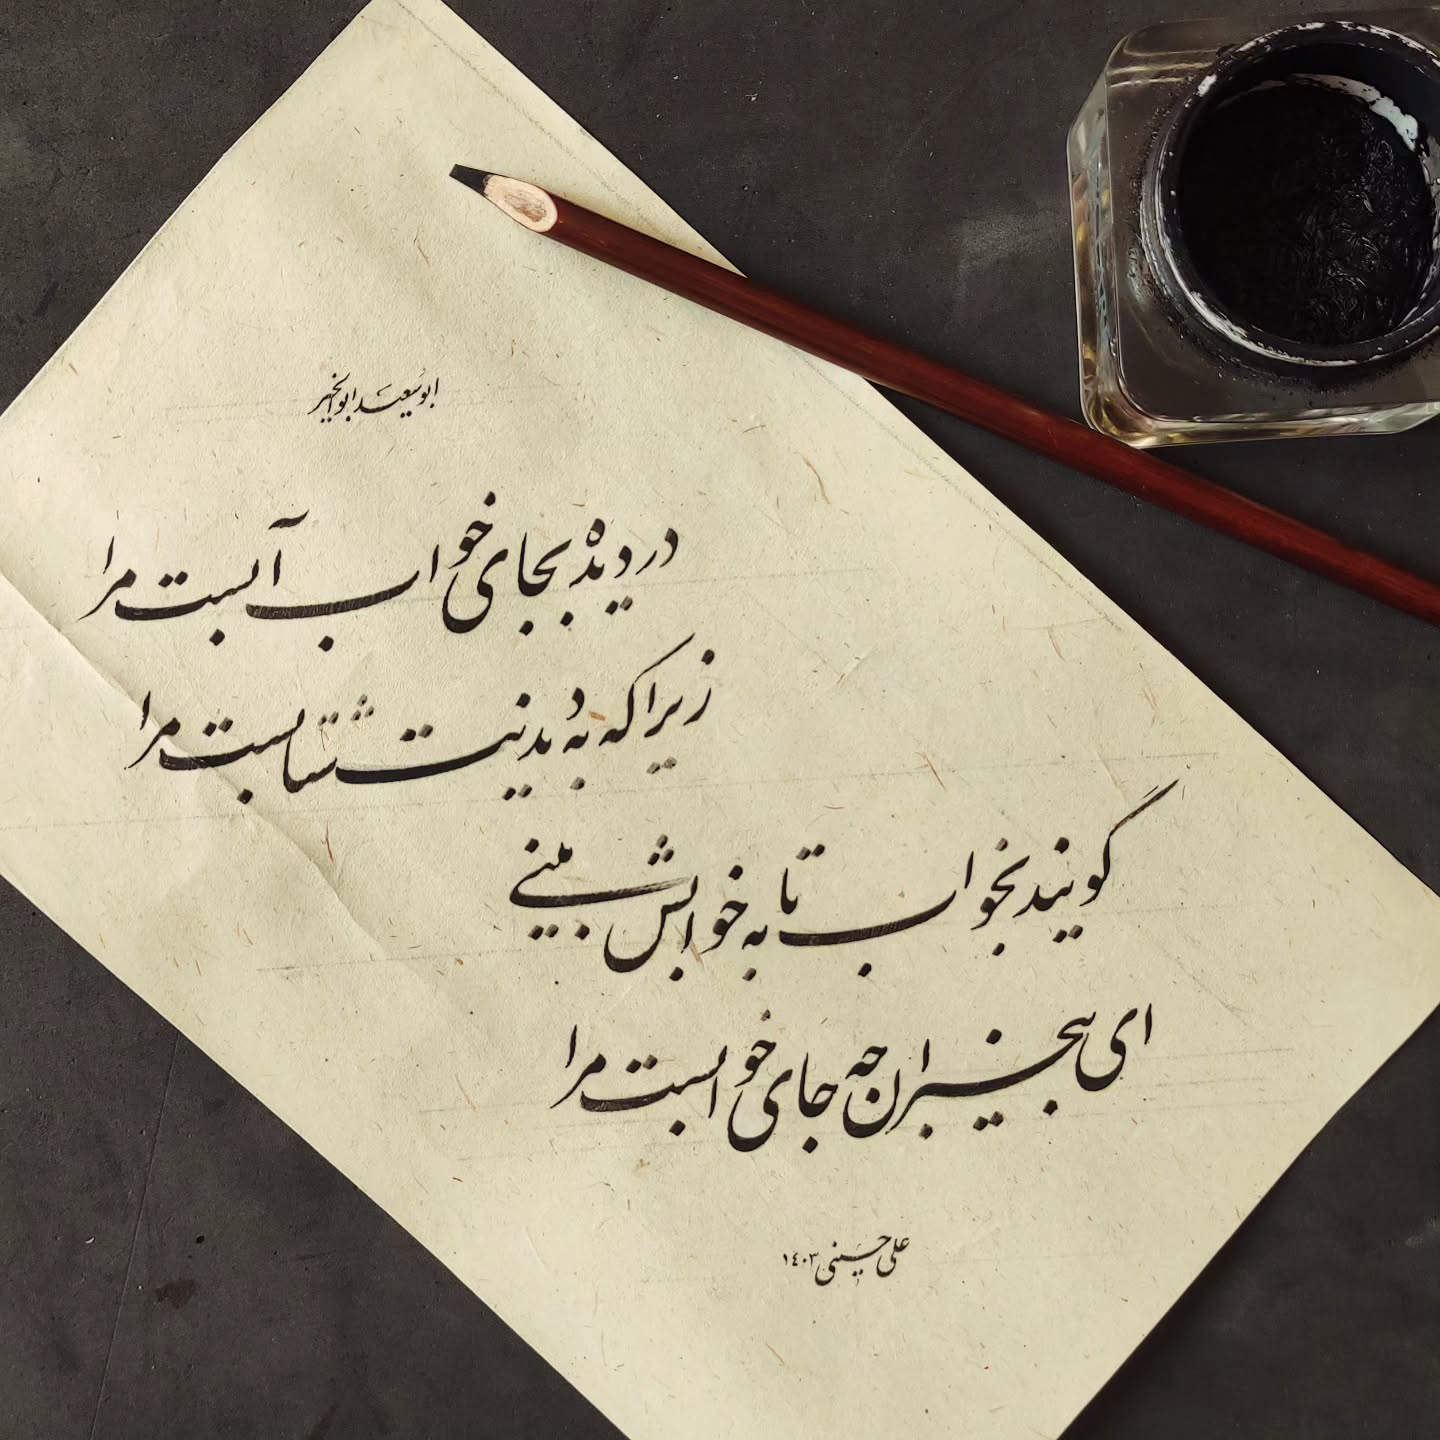 ابوسعید ابوالخیر
در دیده بجای خواب آبست مرا
زیرا که به دیدنت شتابست مرا
گویند بخواب تا به خوابش بینی
ای بیخبران چه جای خوابست مرا
علی حسینی ۱۴۰۳